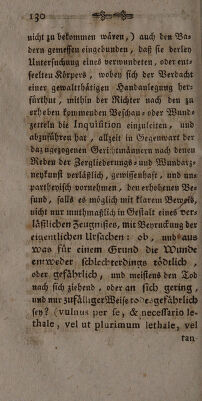 130
nicht zu bekommen wären,) auch den Ba-
dern gemessen eingebunden, daß sie derley
Untersuchung eines verwundeten, oder ent-
seelten Körpers, wobey sich der Verdacht
einer gewaltthätigen Handanlegung her-
fürthut, mithin der Richter nach den zu
erheben kommenden Beschau- oder Wund-
zetteln die Inquisition einzuleiten, und
abzuführen hat, allzeit in Gegenwart der
dazugezogenen Gerichtmännern nach denen
Reden der Zergliederungs- und Wundarz-
neykunst verläßlich, gewissenhaft, und un-
partheyisch vornehmen, den erhobenen Be-
fund, falls es möglich mit klarem Beweis,
nicht nur muthmaßlich in Gestalt eines ver-
läßlichen Zeugnisses, mit Beyruckung der
eigentlichen Ursachen: ob, und aus
was für einem Grund die Wunde
entweder schlechterdings tödtlich,
oder gefährlich, und meistens den Tod
nach sich ziehend, oder an sich gering,
und nur zufälliger Weise todesgefährlich
sey? (vulnus per se, & necessario le-
thale, vel ut plurimum lethale, vel
tan